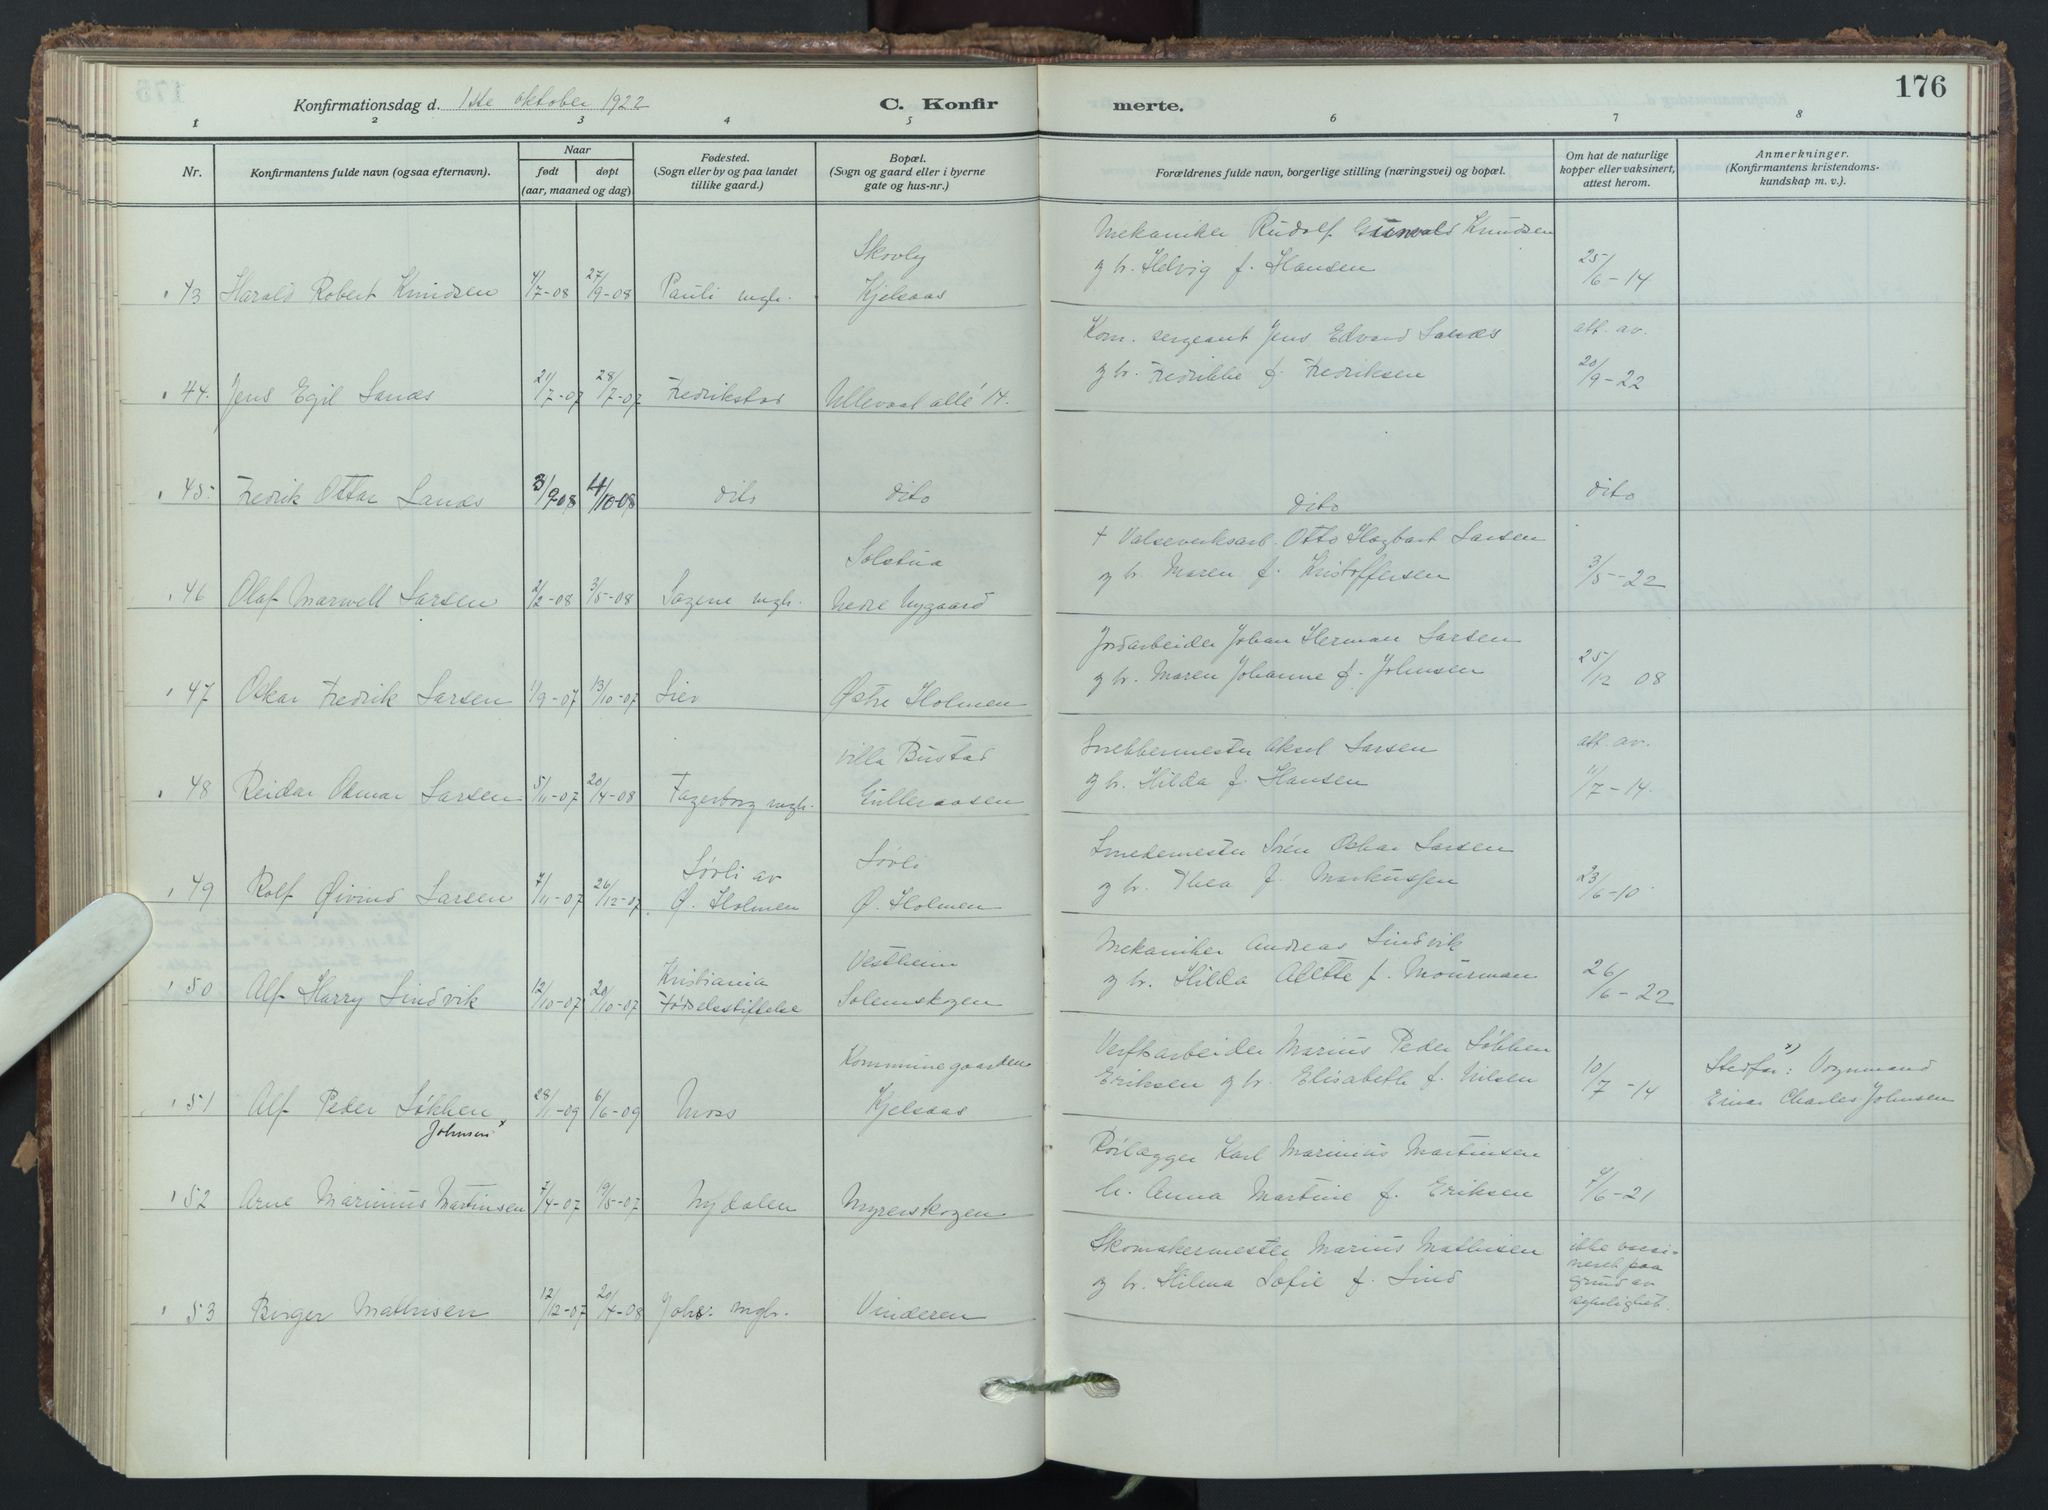 176
Konfirmationsdag d. 1ste oktober 1922 C. Konfirmerte.
1 2 3 4 5 6 7 8
Nr.
Konfirmantens fulde navn (ogsaa efternavn).
Naar
født døpt
(aar, maaned og dag)
Fødested.
(Sogn eller by og paa landet
tillike gaard.)
Bopæl.
(Sogn og gaard eller i byerne
gate og hus-nr.)
Forældrenes fulde navn, borgerlige stilling (næringsvei) og bopæl.
Om hat de naturlige
kopper eller vaksinert,
attest herom.
Anmerkninger.
(Konfirmantens kristendoms-
kundskap m. v.).
Skovly Mekaniker Rudolf Knudsen
43 Harald Robert Knudsen 4/7-08 27/9-08 Pauli mgh. Kjelsaas og h. Helvig f. Hansen 25/6-14
Kom. sergeant Jens Edvard Sandes att. av.
44. Jens Egil Sandes 21/7-07 28/7-07 Fredrikstad Ullevaal allé 14. og h. Fredrikke f. Fredriksen 20/9-22
45. Fredrik Ottar Sandes 3/9-08 4/10-08 dito dito dito dito
Solstua + Valseverksarb. Otto Hagbart Larsen
46 Olaf Marwell Larsen 2/2-08 3/5-08 Sagene mgh. Nedre Nygaard og h. Maren f. Kristoffersen 3/5-22
Jordarbeider Johan Herman Larsen
47 Oskar Fredrik Larsen 1/9-07 13/10-07 Lier Østre Holmen og h. Maren Johanne f. Johnsen 25/12 08
Villa Bustad Snekkermester Aksel Larsen att. av.
48 Reidar Odmar Larsen 5/11-07 20/4-08 Fagerborg mgh. Gulleraasen og h. Hilda f. Hansen 11/7-14.
Sørli av Sørli Smedemester Sören Oskar Larsen
49 Rolf Øivind Larsen 7/11-07 26/12-07 Ø. Holmen Ø. Holmen og h. Thea f. Markussen 23/6-10
Kristiania Vestheim Mekaniker Andreas Lindvik
50 Alf Harry Lindvik 12/10-07 20/10-07 Fødselsstiftelse Solemskogen og h. Hilda Alette f. Mourman 26/6-22
Kommunegaarden Verftarbeider Marius Peder Løkken Stedfar x): Vognmand
51 Alf Peder Løkken x 28/1-09 6/6-09 Moss Kjelsaas Eriksen og h. Elisabeth f. Nilsen 10/7-14 Einar Charles Johnsen
Johnsen
Rørlægger Karl Marinius Martinsen
52 Arne Marinius Martinsen 7/4-07 19/5-07 Nydalen Myrerskogen h. Anna Martine f. Eriksen 4/6-21
Skomakermester Marius Mathisen ikke vaksi-
neret paa
grund av
sykelighet.
53 Birger Mathisen 12/12-07 20/4-08 Johs. mgh. Vinderen og h. Hilma Sofie f. Lind